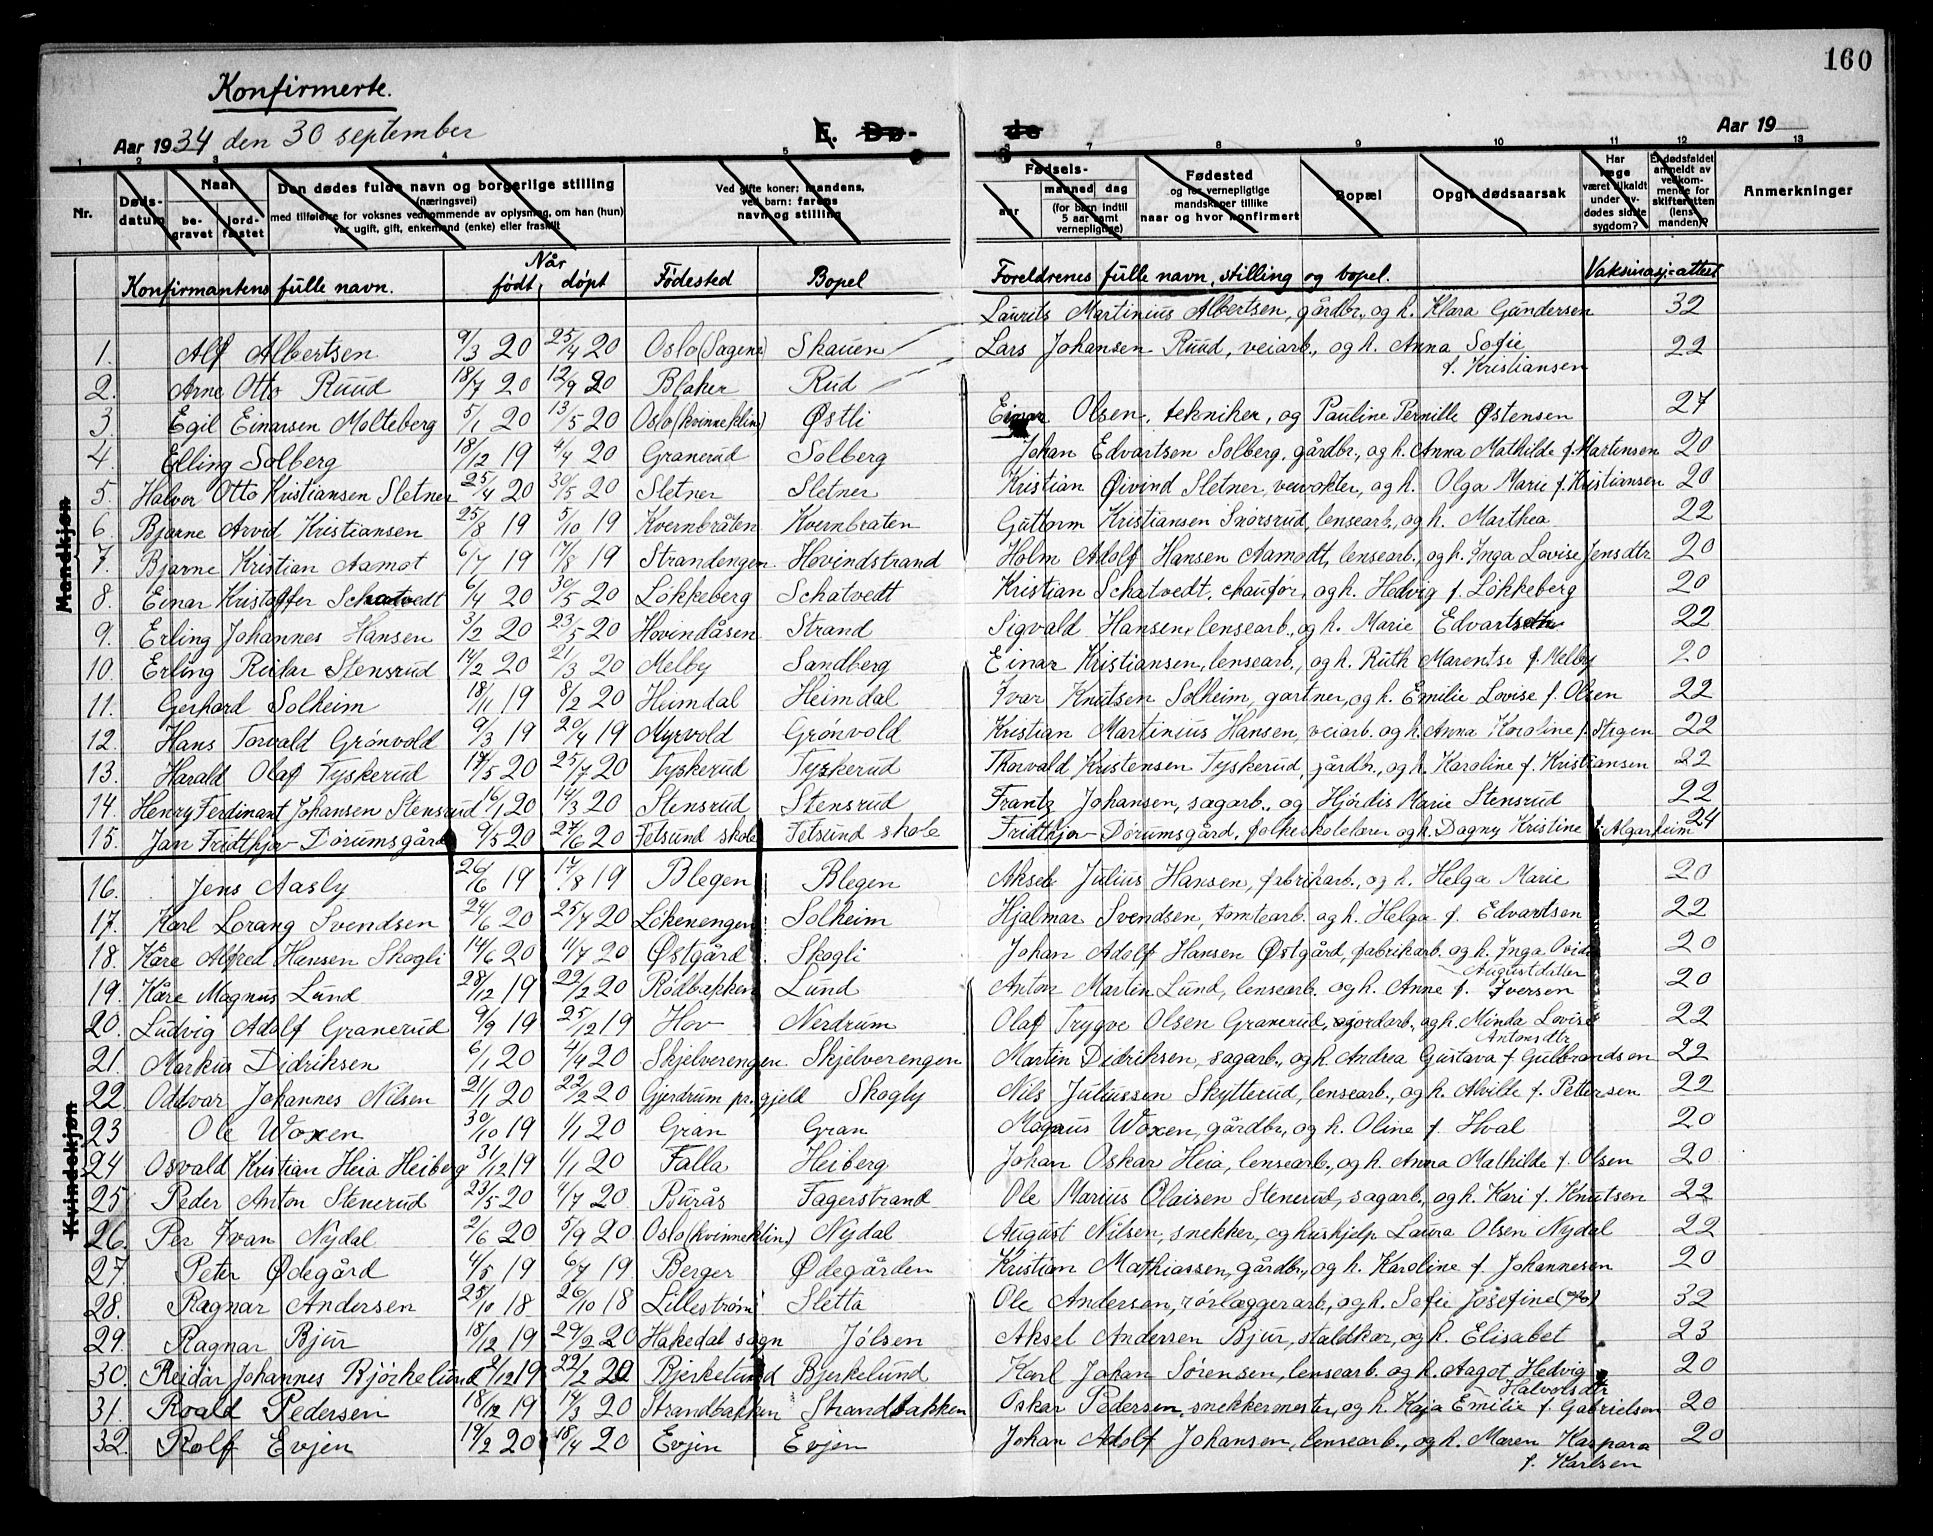 160
Konfirmerte.
Aar 1934 den 30 september
E. Dø-
de
Aar 19
1 2 3 4 5 6 7 8 9 10 11 12 13
Nr.
Døds-
datum
Naar
be-
gravet
jord-
fæstet
Den dødes fulde navn og borgerlige stilling
(næringsvei)
med tilføielse for voksnes vedkommende av oplysning, om han (hun)
var ugift, gift, enkemand (enke) eller fraskilt
Ved gifte koner: mandens,
ved barn: farens
navn og stilling
Fødsels-
aar
maaned
dag
(for barn indtil
5 aar samt
vernepligtige)
Fødested
og for vernepligtige
mandskaper tillike
naar og hvor konfirmert
Bopæl
Opgit dødsaarsak
Har
læge
været tilkaldt
under av-
dødes sidste
sygdom?
Er dødsfaldet
anmeldt av
vedkom-
mende for
skifteretten
(lens-
manden)?
Anmerkninger
Konfirmantens fulle navn. Når født, døpt Fødested Bopel Foreldrenes fulle navn, stilling og bopel. Vaksinasj-attest
Mandkjøn
Kvindekjøn
1. Alf Albertsen 9/3 20 25/4 20 Oslo (Sagene) Skauen Laurits Martinius Albertsen, gårdbr., og h. Klara Gundersen 32
2. Arne Otto Ruud 18/7 20 12/9 20 Blaker Rud Lars Johansen Ruud, veiarb., og h. Anna Sofie f. Kristiansen 22
3. Egil Einarsen Molteberg 5/1 20 13/5 20 Oslo (kvinneklin) Østli Einar Olsen, tekniker, og Pauline Pernille Østensen 27
4. Elling Solberg 18/12 19 4/4 20 Granerud Solberg Johan Edvartsen Solberg, gårdbr., og h. Anna Mathilde f. Martinsen 20
5. Halvor Otto Kristiansen Sletner 25/4 20 30/5 20 Sletner Sletner Kristian Øivind Sletner, veivokter, og h. Olga Marie f. Kristiansen 20
6. Bjarne Arvid Kristiansen 25/8 19 5/10 19 Kvernbråten Kvernbraten Guttorm Kristiansen Snorsrud, lensearb., og h. Marthea 22
7. Bjarne Kristian Aamot 6/7 19 17/8 19 Strandengen Hovindstrand Holm Adolf Hansen Aamodt, lensearb., og h. Inga Lovise Jensdtr 20
8. Einar Kristoffer Schatvedt 6/4 20 30/5 20 Løkkeberg Schatvedt Kristian Schatvedt, chaufør, og h. Hedvig f. Løkkeberg 20
9. Erling Johannes Hansen 3/2 20 23/5 20 Hovindåsen Strand Sigvald Hansen, lensearb., og h. Marie Edvartsen 22
10. Erling Reidar Stensrud 14/2 20 21/3 20 Melby Sandberg Einar Kristiansen, lensearb., og h. Ruth Marentse f. Melby 20
11. Gerhard Solheim 18/11 19 8/2 20 Heimdal Heimdal Ivar Knutsen Solheim, gartner, og h. Emilie Lovise f. Olsen 22
12. Hans Torvald Grønvold 9/3 19 20/4 19 Myrvold Grønvold Kristian Martinius Hansen, veiarb. og h. Anna Karoline f. Stigen 22
13. Harald Olaf Tyskerud 14/5 20 25/7 20 Tyskerud Tyskerud Thorvald Kristensen Tyskerud, gårdbr., og h. Karoline f. Kristiansen 22
14. Henry Ferdinant Johansen Stensrud 16/1 20 14/3 20 Stensrud Stensrud Frantz Johansen, sagarb., og Hjördis Marie Stensrud 22
15. Jan Fridthjov Dørumsgård 9/5 20 27/6 20 Fetsund skole Fetsund skole Fridthjov Dørumsgård, folkeskolelærer og h. Dagny Kristine f. Algarheim 24
16. Jens Aasly 26/6 19 17/8 19 Blegen Blegen Aksel Julius Hansen, fabrikarb., og h. Helga Marie 20
17. Karl Lorang Svendsen 24/6 20 25/7 20 Løkenengen Solheim Hjalmar Svendsen, tomtearb. og h. Helga f. Edvartsen 22
18. Kåre Alfred Hansen Skogli 14/6 20 11/7 20 Østgård Skogli Johan Adolf Hansen Østgård, fabrikarb. og h. Inga Ovidia Augustdatter 20
19. Kåre Magnus Lund 28/12 19 22/2 20 Rødbakken Lund Anton Martin Lund, lensearb. og h. Anne f. Iversen 20
20. Ludvig Adolf Granerud 9/9 19 25/12 19 Hov Nerdrum Olaf Trygve Olsen Granerud, jordarb., og h. Minda Lovise Antonsdtr 22
21. Markus Didriksen 6/1 20 4/4 20 Skjelverengen Skjelverengen Martin Didriksen, sagarb., og h. Andrea Gustava f. Gulbrandsen 22
22. Oddvar Johannes Nilsen 21/1 20 22/2 20 Gjerdrum pr.gjeld Skogly Nils Juliussen Skytterud, lensearb., og h. Alvilde f. Pettersen 22
23 Ole Woxen 30/10 19 1/1 20 Gran Gran Magnus Woxen, gårdbr., og h. Oline f. Hval 20
24 Osvald Kristian Heia Heiberg 31/12 19 1/1 20 Falla Heiberg Johan Oskar Heia, lensearb., og h. Anna Mathilde f. Olsen 20
25 Peder Anton Stenerud 23/5 20 4/7 20 Burås Fagerstrand Ole Marius Olaisen Stenerud, sagarb., og h. Kari f. Knutsen 22
26. Per Ivan Nydal 2/6 20 5/9 20 Oslo (kvinneklin.) Nydal August Nilsen, snekker, og hushjelp Laura Olsen Nydal 22
27. Peter Ødegård 4/5 19 6/7 19. Berger Ødegården Kristian Mathiassen, gårdbr., og h. Karoline f. Johannesen 20
28. Ragnar Andersen 25/10 18 26/10 18 Lillestrøm Sletta Ole Andersen, rørlæggerarb., og h. Sofie Josefine 32
29. Ragnar Bjur 18/12 19 29/2 20 Hakedal sogn Jølsen Aksel Andersen Bjur, staldkar, og h. Elisabet 23
30. Reidar Johannes Bjørkelund 2/12 19 22/2 20 Bjerkelund Bjerkelund Karl Johan Sørensen, lensearb. og h. Aagot Hedvig Halvorsdtr 20
31. Roald Pedersen 18/12 19 14/3 20 Strandbakken Strandbakken Oskar Pedersen, snekkermester, og h. Kaja Emilie f. Gabrielsen 20
32. Rolf Evjen 19/2 20 18/4 20 Evjen Evjen Johan Adolf Johansen, lensearb., og h. Maren Kaspara f. Karlsen 20